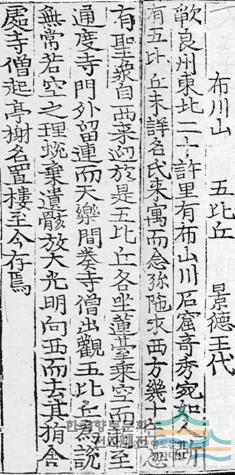 布川山 五比丘 景德王代
歃良州東北二十許里有布山川石窟奇秀宛如人
有五比丘未詳名氏來寓而念弥陁求西方幾十
有聖衆自西來迎於是五比丘各坐蓮臺乘空而逝至
通度寺門外留連而天樂間奏寺僧出觀五比丘爲說
無常苦空之理蛻棄遺骸放大光明向西而去其捐舍
處寺僧起亭榭名置樓至今存焉